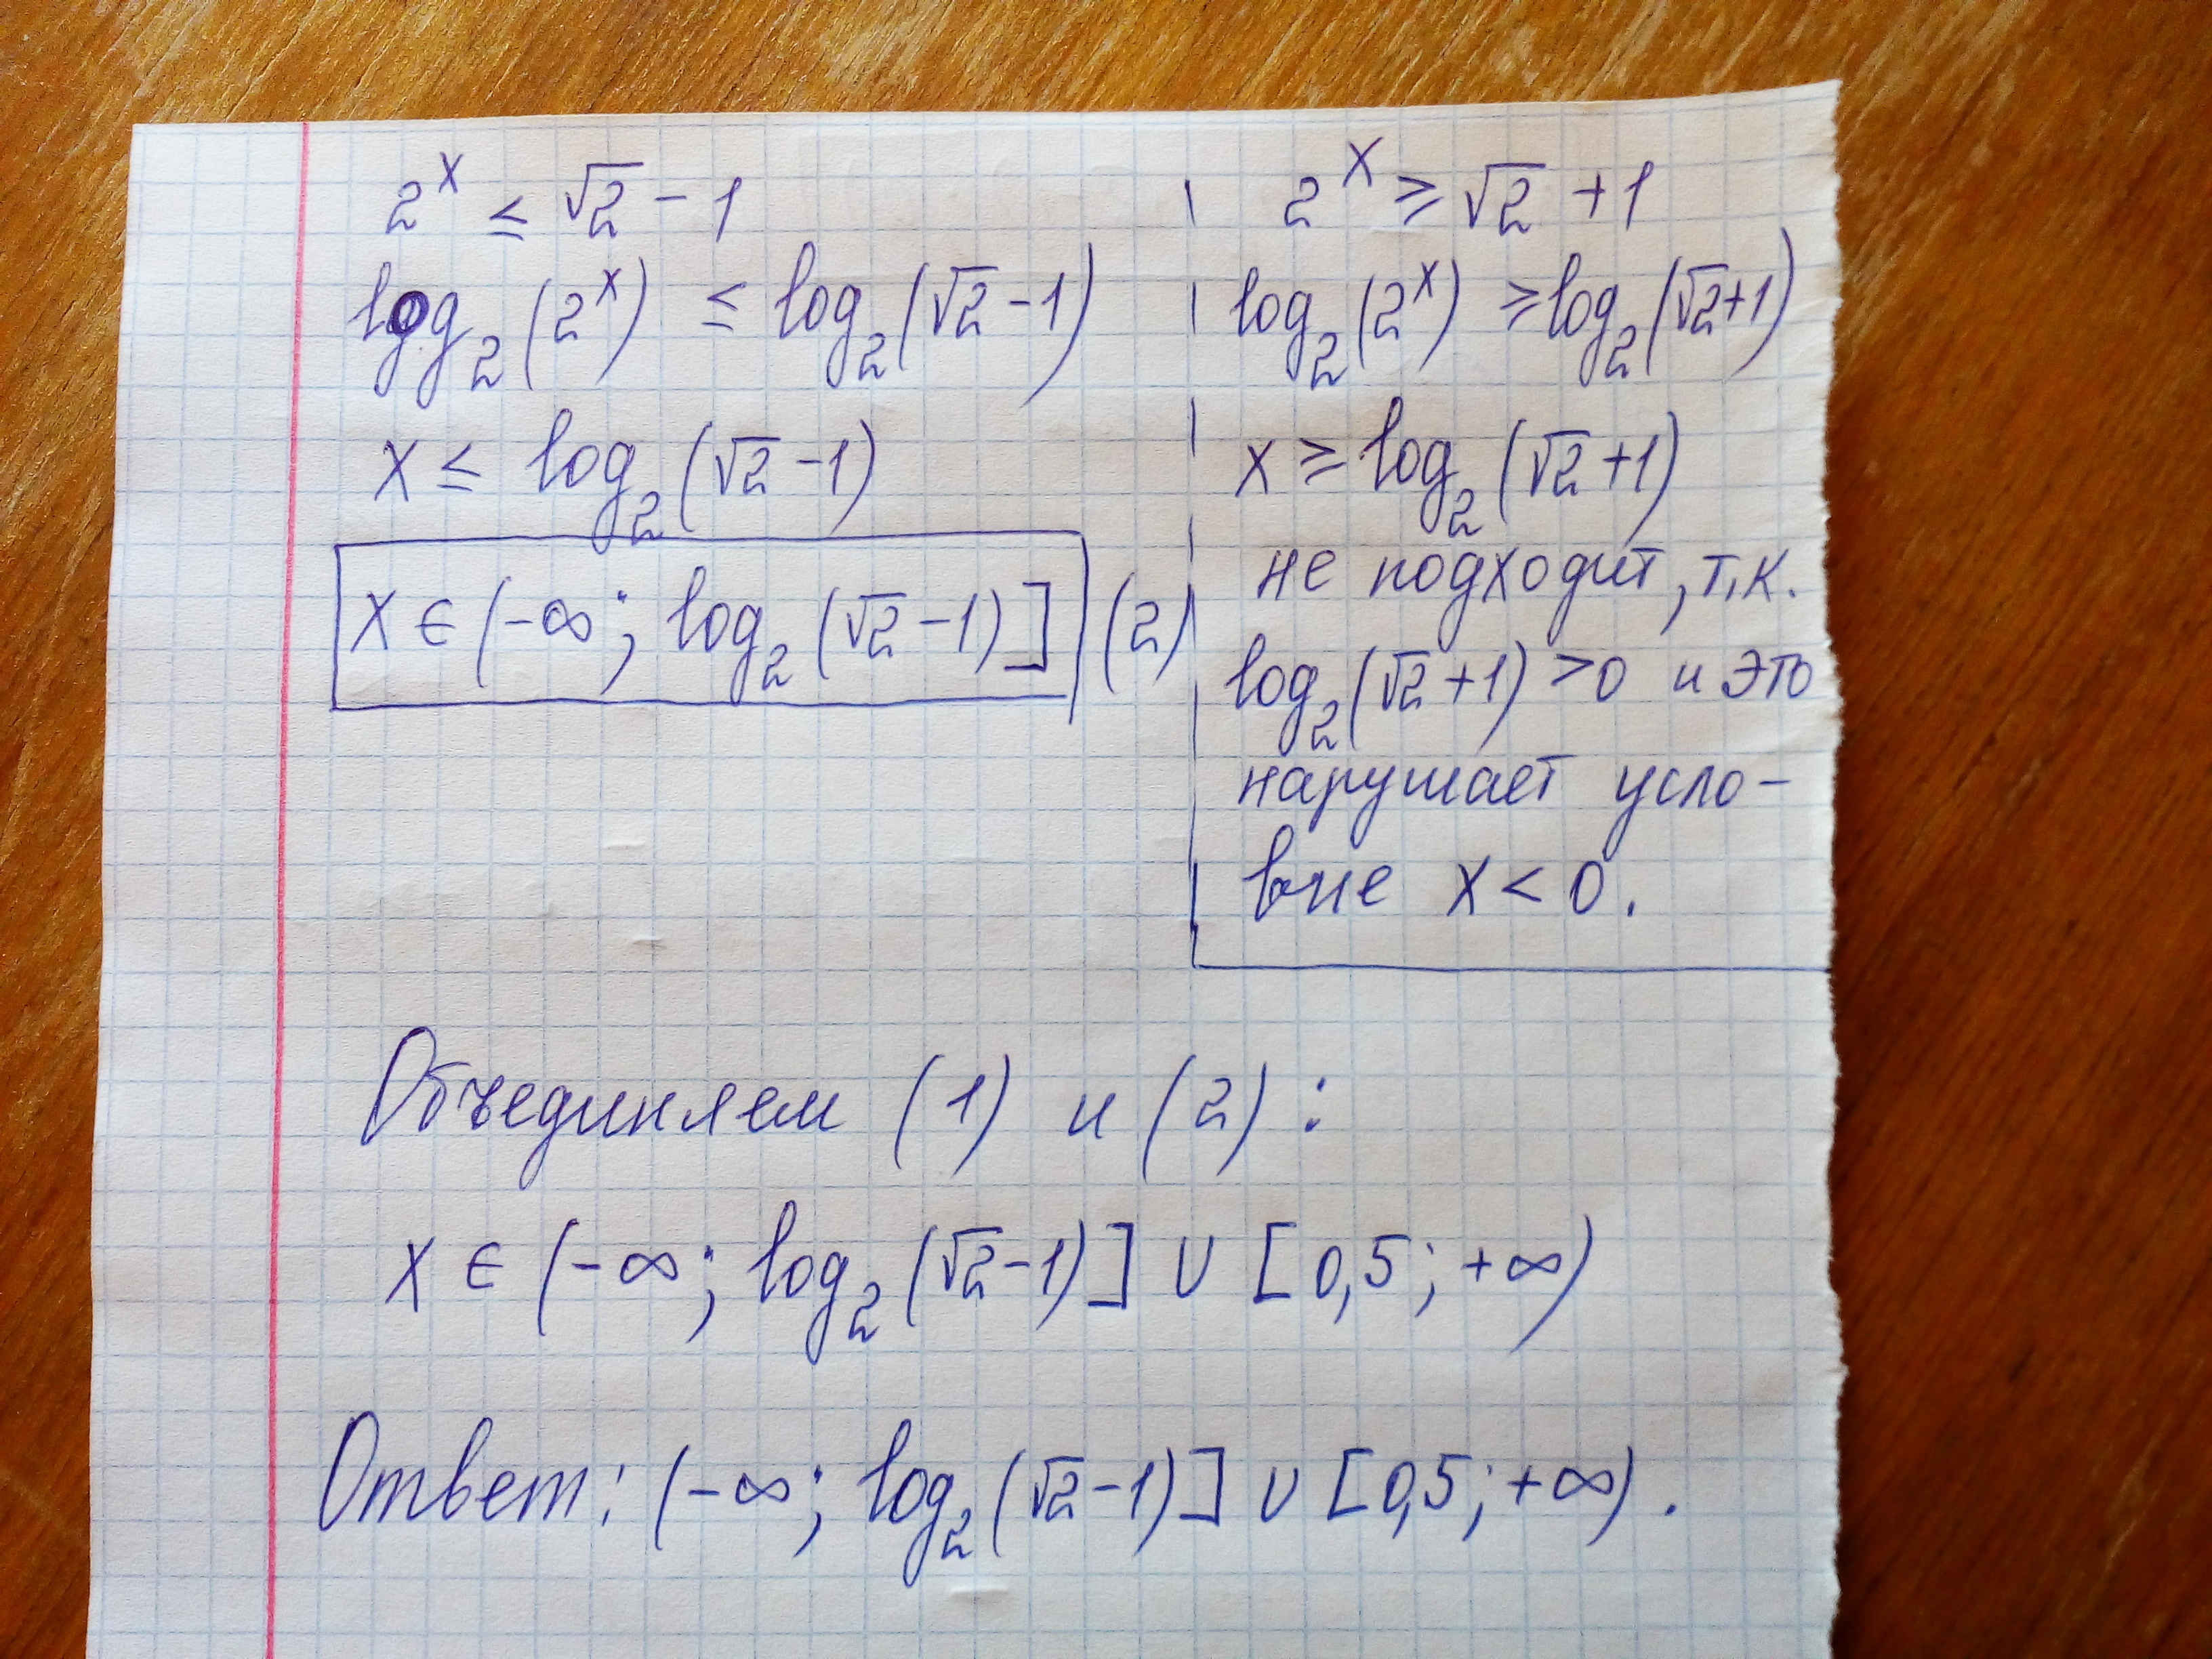 2^x ≤ √2 - 1
log_2(2^x) ≤ log_2(√2 - 1)
x ≤ log_2(√2 - 1)
x ∈ (-∞; log_2(√2 - 1)] (2)
2^x ≥ √2 + 1
log_2(2^x) ≥ log_2(√2+1)
x ≥ log_2(√2 + 1)
не подходит, т.к.
log_2(√2 + 1) > 0 и это
нарушает усло-
вие x < 0.
Объединяем (1) и (2):
x ∈ (-∞; log_2(√2-1)] ∪ [0,5; +∞)
Ответ: (-∞; log_2(√2-1)] ∪ [0,5; +∞).